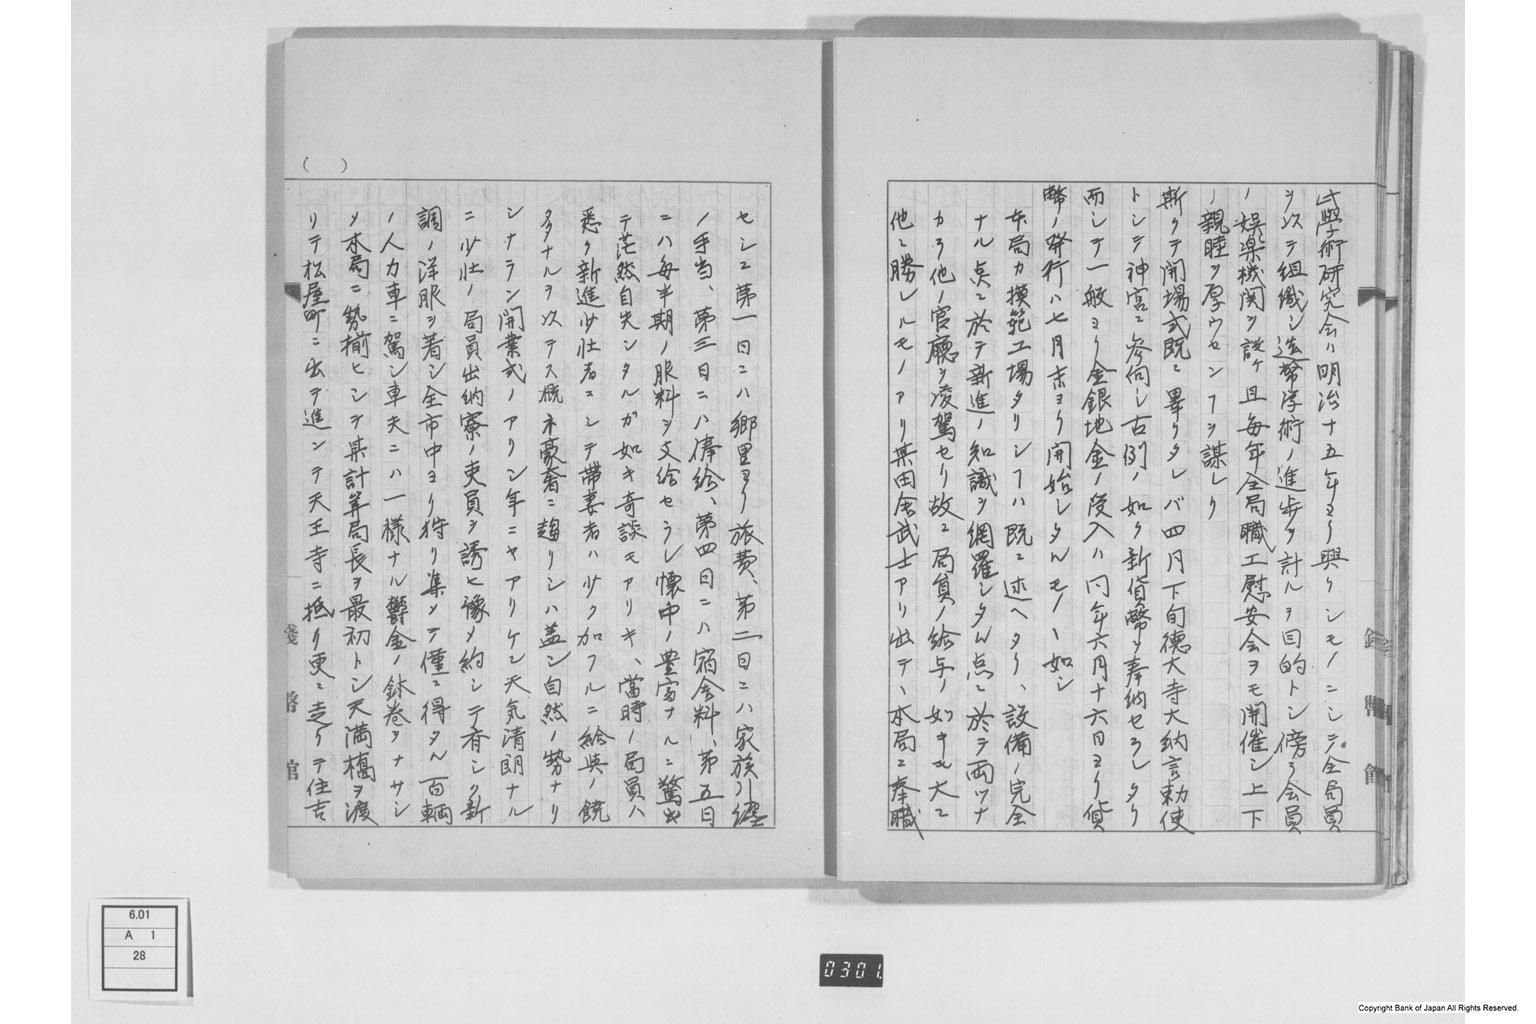 此學術研究会ハ明治十五年ヨリ興リシモノニシテ全局員
ヲ以テ組織シ造幣学術ノ進歩ヲ計ルヲ目的トシ傍ラ会員
ノ娯楽機関ヲ設ケ且毎年全局職工慰安会ヲモ開催シ上下
ノ親睦ヲ厚ウセンコヲ謀レリ
斯クテ開場式既ニ畢リタレバ四月下旬徳大寺大納言勅使
トシテ神宮ニ参向シ古例ノ如ク新貨幣ヲ奉納セラレタリ
而シテ一般ヨリ金銀地金ノ受入ハ同年六月十六日ヨリ貨
幣ノ発行ハ七月末ヨリ開始シタルモノヽ如シ
本局カ模範工場タリシコハ既ニ述ヘタリ、設備ノ完全
ナル点ニ於テ新進ノ知識ヲ網羅シタル点ニ於テ両ツナ
カラ他ノ官廳ヲ凌駕セリ故ニ局員ノ給与ノ如キ大ニ
他ニ勝レルモノアリ某田舎武士アリ出テヽ本局ニ奉職
セシニ第一日ニハ郷里ヨリ旅費、第二日ニハ家族引纏
ノ手当、第三日ニハ俸給、第四日ニハ宿舎料、第五日
ニハ毎半期ノ服料ヲ支給セラレ懐中ノ豊富ナルニ驚出
テ茫然自失シタルガ如キ奇談モアリキ、當時ノ局員ハ
悉ク新進少壮者ニシテ帯妻者ハ少ク加フルニ給與ノ饒
多ナルヲ以テス概ネ豪奢ニ趨リシハ蓋シ自然ノ勢ナリ
シナラン開業式ノアリシ年ニヤアリケン天気清朗ナル
ニ少壮ノ局員出納寮ノ吏員ヲ誘ヒ豫メ約シテ斉シク新
調ノ洋服ヲ着シ全市中ヨリ狩リ集メテ僅ニ得タル百輌
ノ人力車ニ駕シ車夫ニハ一様ナル欝金ノ鉢巻ヲナサシ
メ本局ニ勢揃ヒシテ某計算局長ヲ最初トシ天満橋ヲ渡
リテ松屋町ニ出テ進ンテ天王寺ニ抵リ更ニ走リテ住吉
( )
6.01
A 1
28
0301
Copyright Bank of Japan All Rights Reserved.